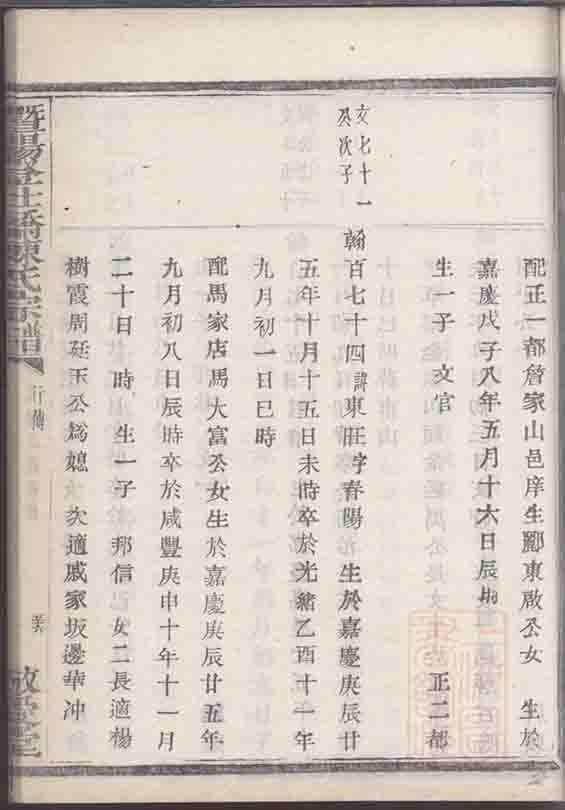 配正一都詹家山邑庠生酈東啟公女 生於
嘉慶戊子八年五月十六日辰時 正二都
生一子 文官
文七十一
公次子
翰百七十四諱東旺字春陽 生於嘉慶庚辰廿
五年十月十五日未時卒於光緒乙酉十一年
九月初一日巳時
配馬家店馬大富公女生於嘉慶庚辰廿五年
九月初八日辰時卒於咸豐庚申十年十一月
二十日 時 生一子 邦信 女二長適楊
樹霞周廷玉公為媳 次適戚家坂邊華冲
暨陽 陳氏宗譜
行傳